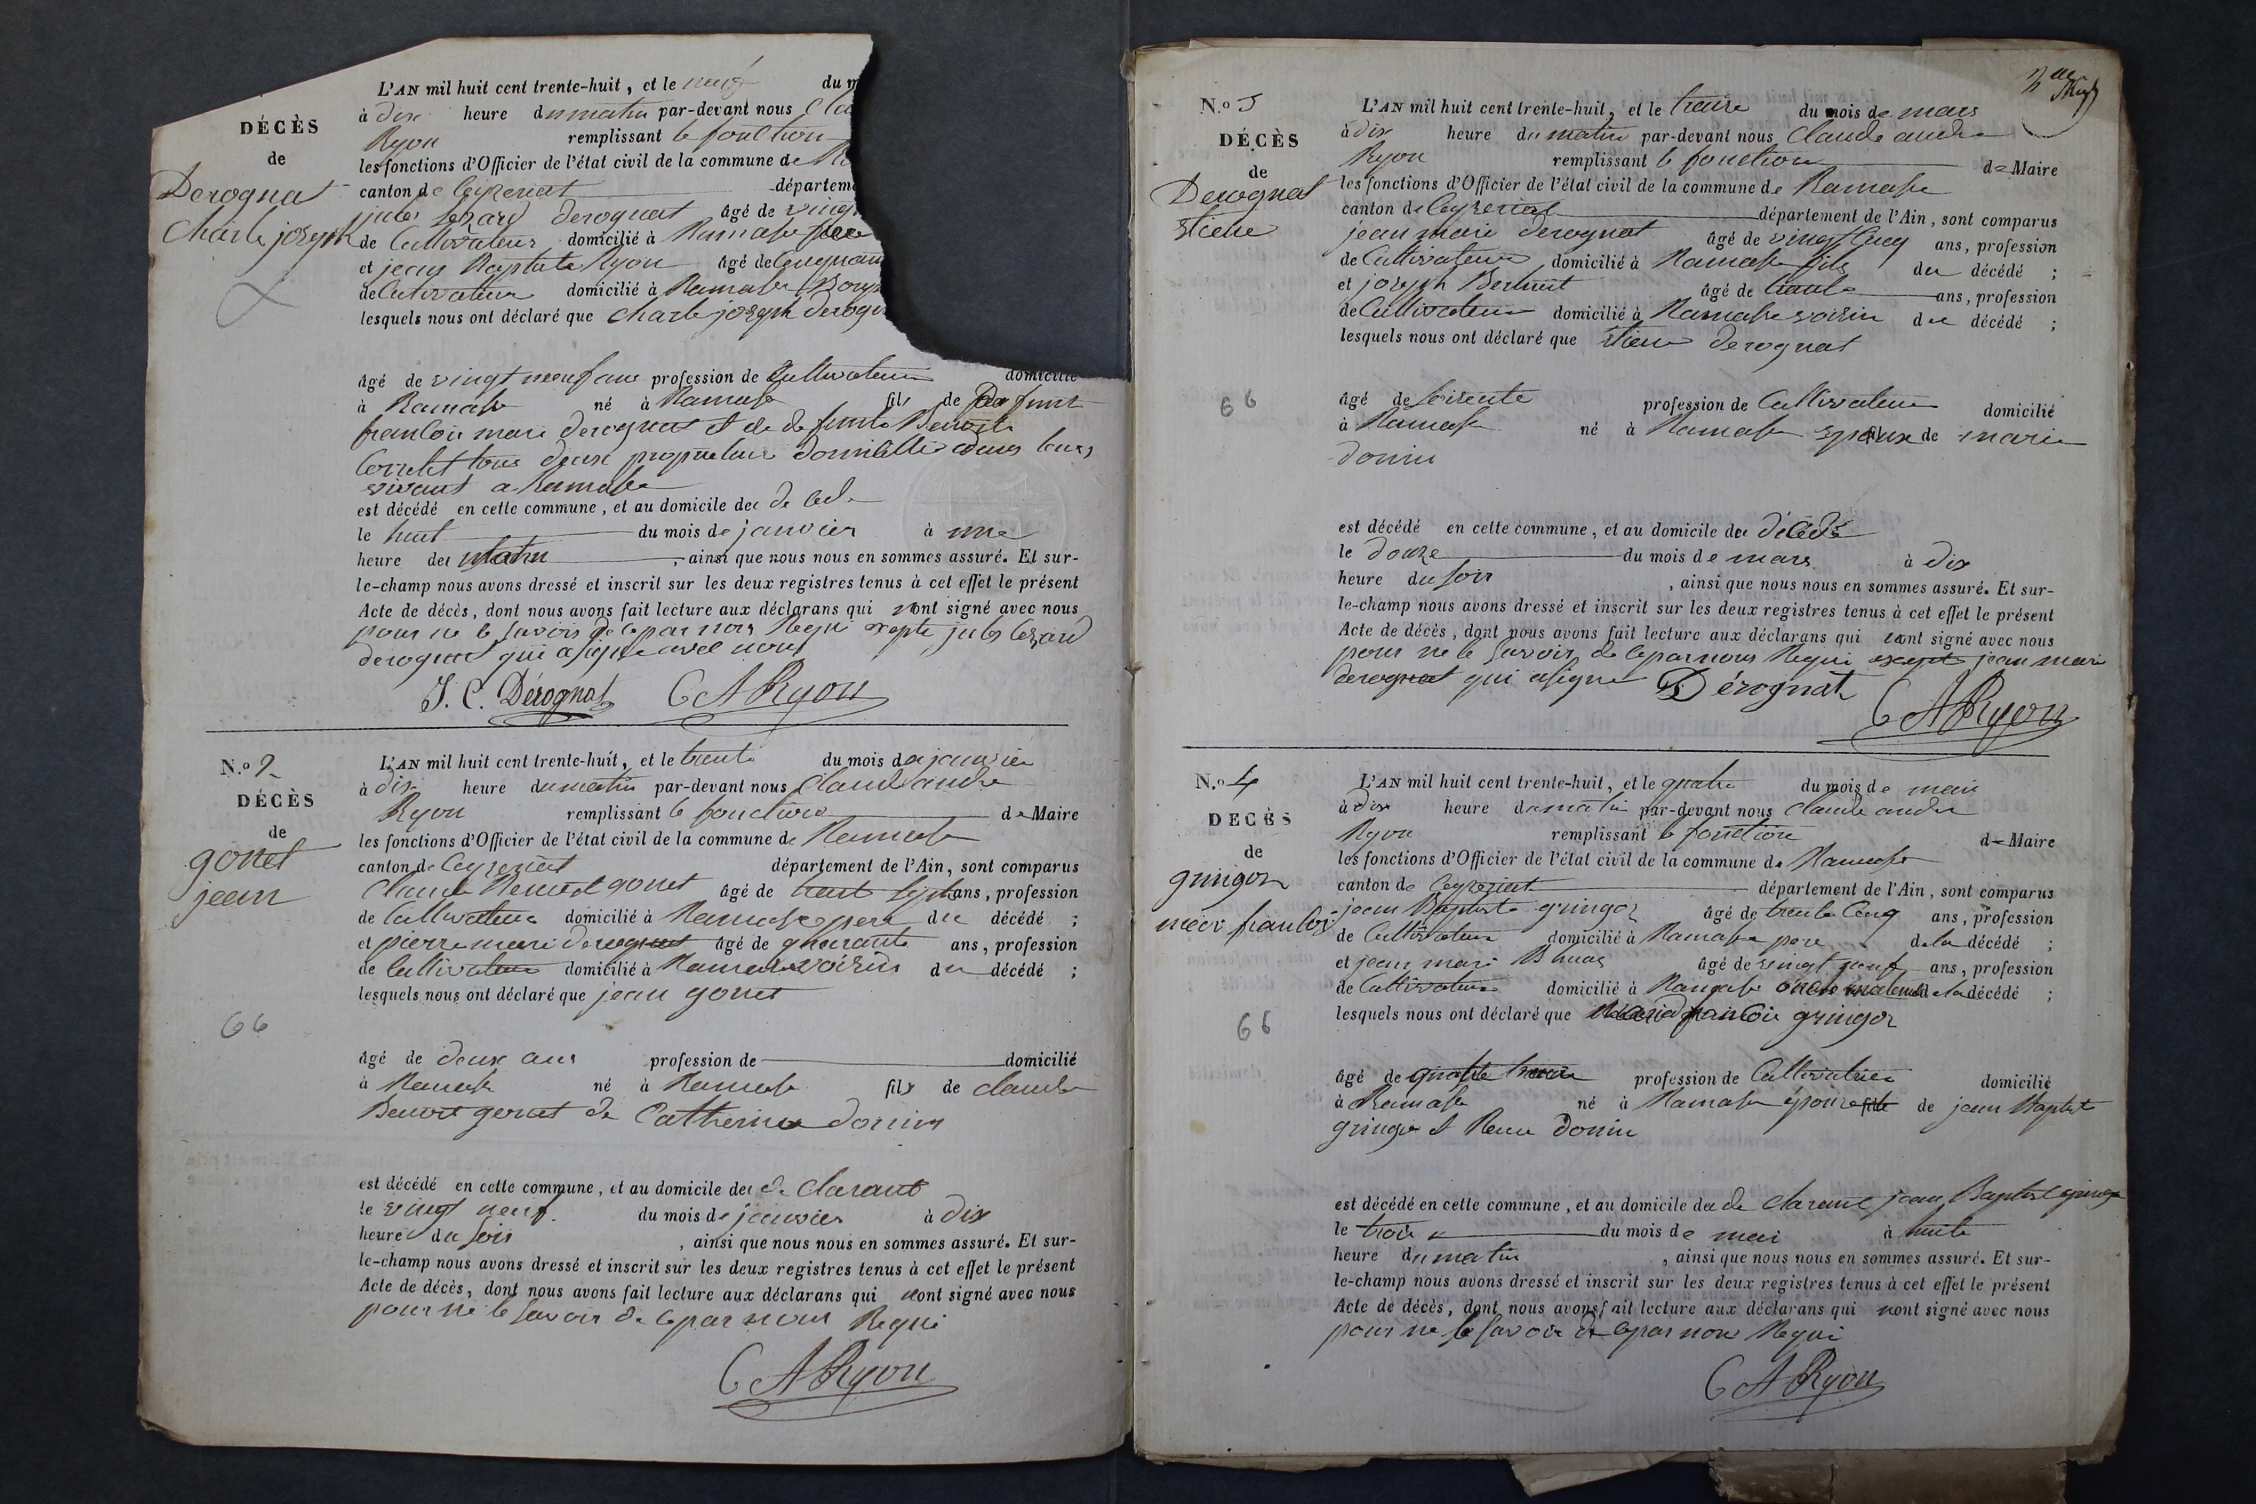 DÉCÈS
de
Derognat
Charle joseph
L'AN mil huit cent trente-huit, et le neuf du m
à dix heure du matin par-devant nous Cla
Ryon remplissant le fonction
les fonctions d'Officier de l'état civil de la commune de Ra
canton de Ceyzeriat départeme
jules Cezard derognat âgé de vingt
de Cultivateur domicilié à Ramasse
et jean Baptiste Ryon âgé de Cinquan
de Cultivateur domicilié à Ramasse
lesquels nous ont déclaré que Charle joseph derogn
âgé de vingt neuf ans profession de Cultivateur domicilié
à Ramasse né à Ramasse fils de defunt
francois marie derognat et de defunte Benoite
tous deux proprietaire domicillié dans leurs
vivant a Ramasse
est décédé en cette commune, et au domicile du
le huit du mois de janvier à une
heure du matin, ainsi que nous nous en sommes assuré. Et sur-
le-champ nous avons dressé et inscrit sur les deux registres tenus à cet effet le présent
Acte de décès, dont nous avons fait lecture aux déclarans qui n'ont signé avec nous
pour ne le savoir de ce par nous Requi exepte jules Cezard
derognat qui a signe avec nous
J. C. Dérognat C A Ryon
N.º 2
DÉCÈS
de
gonet
jean
L'AN mil huit cent trente-huit, et le trente du mois de janvier
à dix heure du matin par-devant nous Claude andre
Ryon remplissant le fonction de Maire
les fonctions d'Officier de l'état civil de la commune de Ramasse
canton de Ceyzeriat département de l'Ain, sont comparus
Claude Benoit gonet âgé de trente sept ans, profession
de Cultivateur domicilié à Ramasse pere du décédé ;
et pierre marie derognat âgé de quarante ans, profession
de Cultivateur domicilié à Ramasse voisin du décédé ;
lesquels nous ont déclaré que jean gonet
66
âgé de deux ans profession de domicilié
à Ramasse né à Ramasse fils de claude
Benoit gonet de Catherine donin
est décédé en cette commune, et au domicile du declarant
le vingt neuf du mois de janvier à dix
heure du soir, ainsi que nous nous en sommes assuré. Et sur-
le-champ nous avons dressé et inscrit sur les deux registres tenus à cet effet le présent
Acte de décès, dont nous avons fait lecture aux déclarans qui n'ont signé avec nous
pour ne le savoir de ce par nous Requi
C A Ryon
N.º 3
DÉCÈS
de
Derognat
Etiene
L'AN mil huit cent trente-huit, et le treize du mois de mars
à dix heure du matin par-devant nous Claude andre
Ryon remplissant le fonction de Maire
les fonctions d'Officier de l'état civil de la commune de Ramasse
canton de Ceyzeriat département de l'Ain, sont comparus
jean marie derognat âgé de vingt Cinq ans, profession
de Cultivateur domicilié à Ramasse fils du décédé ;
et joseph âgé de trente ans, profession
de Cultivateur domicilié à Ramasse voisin du décédé ;
lesquels nous ont déclaré que Etiene derognat
66
âgé de soixante profession de Cultivateur domicilié
à Ramasse né à Ramasse epoux de marie
donin
est décédé en cette commune, et au domicile du décédé
le douze du mois de mars à dix
heure du soir, ainsi que nous nous en sommes assuré. Et sur-
le-champ nous avons dressé et inscrit sur les deux registres tenus à cet effet le présent
Acte de décès, dont nous avons fait lecture aux déclarans qui n'ont signé avec nous
pour ne le savoir de ce par nous Requi exepte jean marie
derognat qui a signe Dérognat C A Ryon
N.º 4
DÉCÈS
de
gringoz
L'AN mil huit cent trente-huit, et le quatre du mois de mai
à dix heure du matin par-devant nous Claude andre
Ryon remplissant le fonction de Maire
les fonctions d'Officier de l'état civil de la commune de Ramasse
canton de Ceyzeriat département de l'Ain, sont comparus
jean Baptiste gringoz âgé de trente Cinq ans, profession
de Cultivateur domicilié à Ramasse pere de la décédé ;
et jean marie âgé de vingt neuf ans, profession
de Cultivateur domicilié à Ramasse oncle maternel de la décédé ;
lesquels nous ont déclaré que Marie francoise gringoz
66
âgé de quatre profession de Cultivatrice domicilié
à Ramasse né à Ramasse fille de jean Baptiste
gringoz et Reine Donin
est décédé en cette commune, et au domicile du declarant jean Baptiste gringoz
le trois du mois de mai à huite
heure du matin, ainsi que nous nous en sommes assuré. Et sur-
le-champ nous avons dressé et inscrit sur les deux registres tenus à cet effet le présent
Acte de décès, dont nous avons fait lecture aux déclarans qui n'ont signé avec nous
pour ne le savoir de ce par nous Requi
C A Ryon